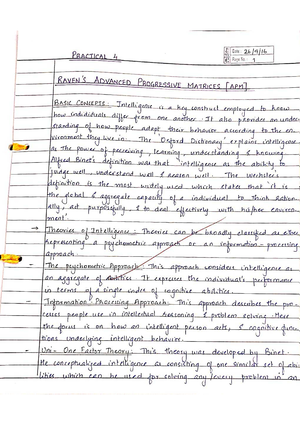 PRACTICAL 4
Date 26/9/16
Page No. 1
RAVEN'S ADVANCED PROGRESSIVE MATRICES [APM]
BASIC CONCEPTS: Intelligence is a key construct employed to know
how individuals differ from one another. It also provides an under-
standing of how people adapt their behaviour according to the en-
vironment they live in. The 'Oxford Dictionary' explains intelligence
as the power of perceiving, learning, understanding & knowing.
Alfred Binet's definition was that "intelligence as the ability to
judge well, understand well & reason well. The Wechsler's
definition is the most widely used which states that 'it is
the global & aggregate capacity of a individual to think ration-
ally, act purposefully, & to deal effectively with his/her environ-
ment.'
→ Theories of Intelligence: Theories can be broadly classified as either
representing a psychometric approach or an information-processing
approach.
- The psychometric Approach: This approach considers intelligence as
an aggregate of abilities. It expresses the individual's performance
in terms of a single index of cognitive abilities.
- Information Processing Approach: This approach describes the pro-
cesses people use in intellectual reasoning & problem solving. Here
the focus is on how an intelligent person acts, & cognitive func-
tions underlying intelligent behaviour.
- Uni- One Factor Theory: This theory was developed by Binet.
He conceptualised intelligence as consisting of one similar set of abi-
lities which can be used for solving any/every problem in an